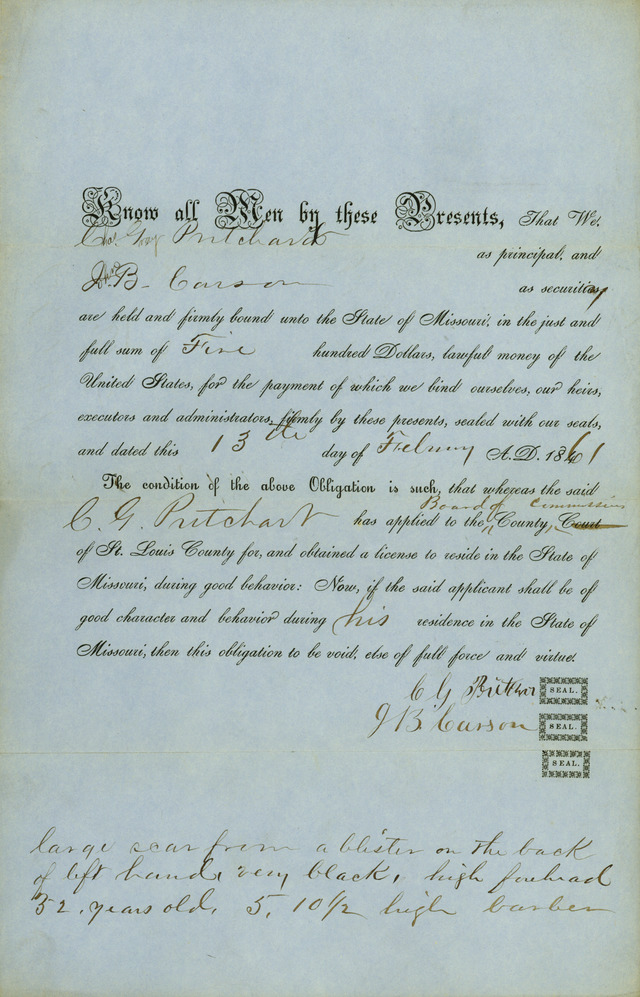 Know all Men by these Presents, That We,
Pritchart
as principal, and
J B. Carson
as security
are held and firmly bound unto the State of Missouri, in the just and
full sum of Five hundred Dollars, lawful money of the
United States, for the payment of which we bind ourselves, our heirs,
executors and administrators, firmly by these presents, sealed with our seals,
and dated this 13th day of A.D. 1861
The condition of the above Obligation is such, that whereas the said
Board of Commissioners
C. G. Pritchart has applied to the County Court
of St. Louis County for, and obtained a license to reside in the State of
Missouri, during good behavior: Now, if the said applicant shall be of
good character and behavior during his residence in the State of
Missouri, then this obligation to be void, else of full force and virtue.
C G SEAL.
J B. Carson SEAL.
SEAL.
large scar from a blister on the back
of left hand, very black, high forehead
52 years old, 5, 10 1/2 high barber